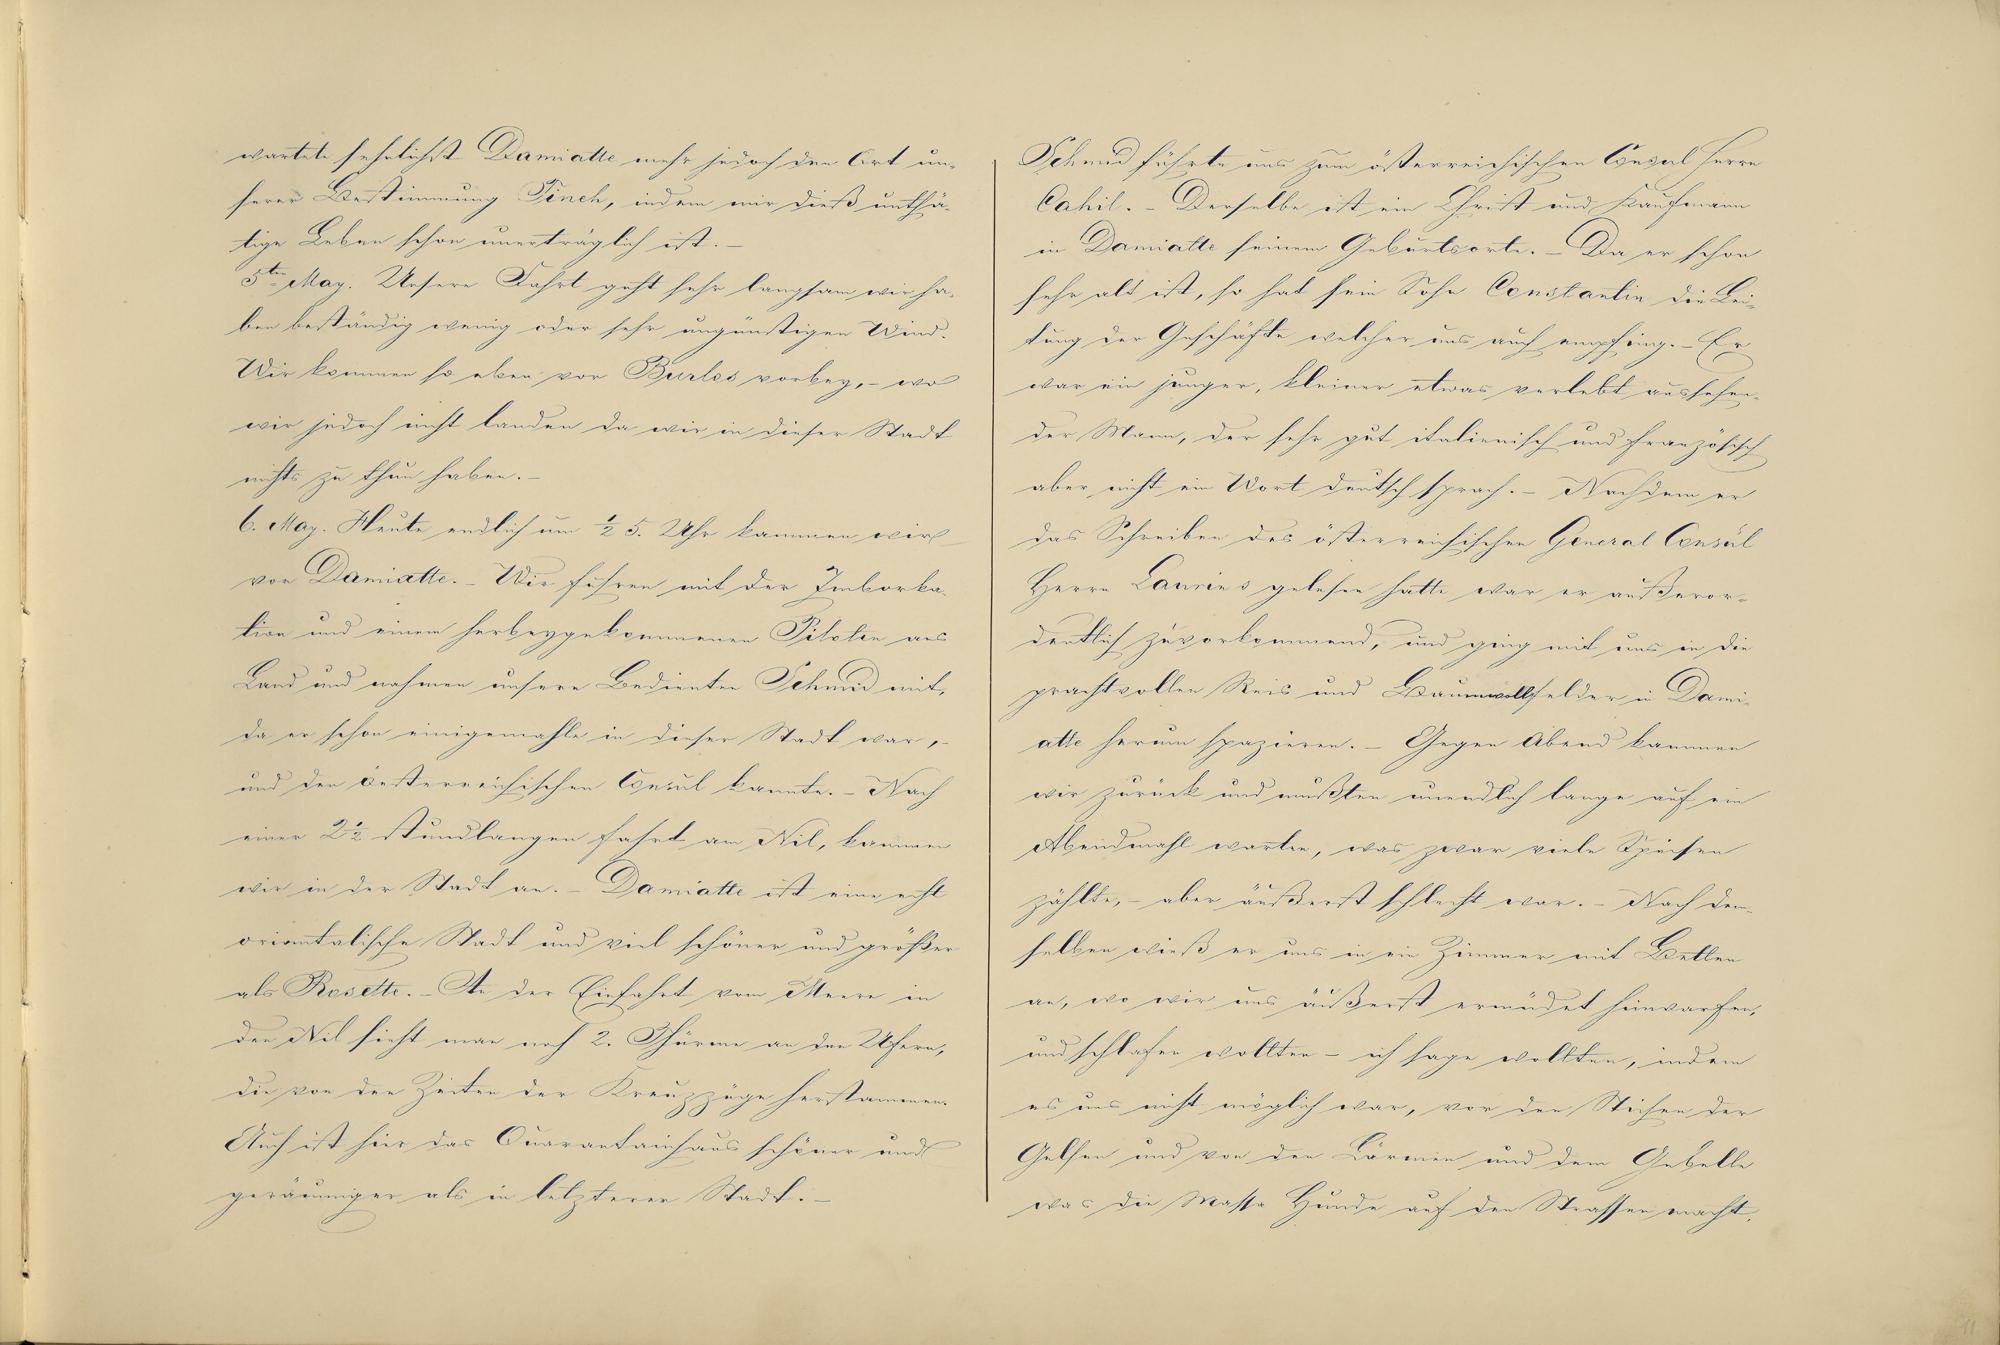 wartete sehnlichst Damiatte mehr jedoch den Ort un-
serer Bestimmung Tineh, indem mir dieß unthä-
tige Leben schon unerträglich ist. –
5ten May. Unsere Fahrt geht sehr langsam wir ha-
ben beständig wenig oder sehr ungünstigen Wind.
Wir kommen so eben vor Burlos vorbey, – wo
wir jedoch nicht landen da wir in dieser Stadt
nichts zu thun haben. –
6. May. Heute endlich um ½ 5. Uhr kammen wir
vor Damiatte. – Wir fuhren mit der Imborka-
tion und einem herbeygekommenen Piloten ans
Land und nahmen unsern Bedienten Schmid mit,
da er schon einigemahle in dieser Stadt war, –
und den oesterreichischen Consul kannte. – Nach
einer 2½ stundlangen Fahrt am Nil, kammen
wir in der Stadt an. – Damiatte ist eine echt
orientalische Stadt und viel schöner und größer
als Rosette. – An der Einfahrt vom Meere in
den Nil sieht man noch 2. Thürme an den Ufern,
die von den Zeiten der Kreuzzüge herstammen.
Auch ist hier das Quarantainhaus schöner und
geräumiger als in letzterer Stadt. –
Schmid führte uns zum österreichischen Consul Herrn
Cahil. – Derselbe ist ein Christ und Kaufmann
in Damiatte seinem Geburtsorte. – Da er schon
sehr alt ist, so hat sein Sohn Constantin die Lei-
tung der Geschäfte welcher uns auch empfing. – Er
war ein junger, kleiner etwas verlebt aussehen-
der Mann, der sehr gut italienisch und französisch
aber nicht ein Wort deutsch sprach. – Nachdem er
das Schreiben des österreichischen General Consul
Herrn Laurins gelesen hatte war er außeror-
dentlich zuvorkommend, und ging mit uns in die
prachtvollen Reis und Baumwollfelder in Dami-
atte herum spazieren. – Gegen Abend kammen
wir zurück und mußten unendlich lange auf ein
Abendmahl warten, was zwar viele Speisen
zählte, – aber äußerst schlecht war. – Nach dem-
selben wieß er uns in ein Zimmer mit Betten
an, wo wir uns äußerst ermüdet hinwarfen,
und schlafen wollten – ich sage wollten, indem
es uns nicht möglich war, vor den Stichen der
Gelsen und von den Lärmen und dem Gebelle
was die Massa Hunde auf den Strassen macht,